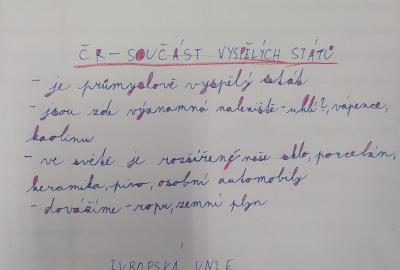 ČR – SOUČÁST VYSPĚLÝCH STÁTŮ
- je průmyslově vyspělý stát
- jsou zde významná naleziště - uhlí?, vápence,
kaolinu
- ve světě je rozšířené naše sklo, porcelán,
keramika, pivo, osobní automobily
- dovážíme - ropu, zemní plyn
EVROPSKÁ UNIE